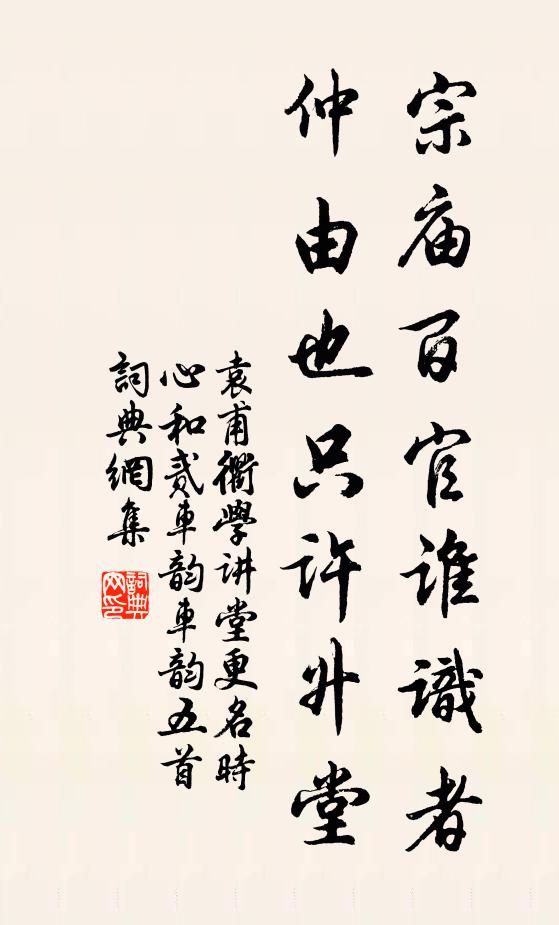 宗庙百官谁識者
仲由也只许升堂
袁甫衢學讲堂更名時
心和贰車韵車韵五首
詞典網集
詞典网印